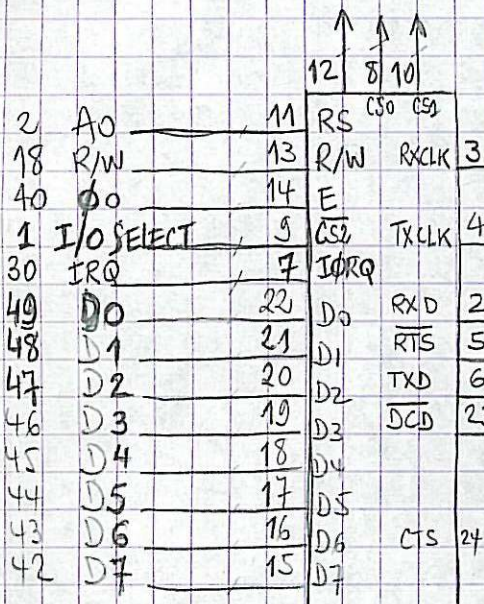 12 8 10
CS0 CS1
2 A0 11 RS
18 R/W 13 R/W RXCLK 3
40 ϕ0 14 E
1 I/O SELECT 9 CS2 TXCLK 4
30 IRQ 7 IØRQ
49 D0 22 D0 RXD 2
48 D1 21 D1 RTS 5
47 D2 20 D2 TXD 6
46 D3 19 D3 DCD 23
45 D4 18 D4
44 D5 17 D5
43 D6 16 D6 CTS 24
42 D7 15 D7